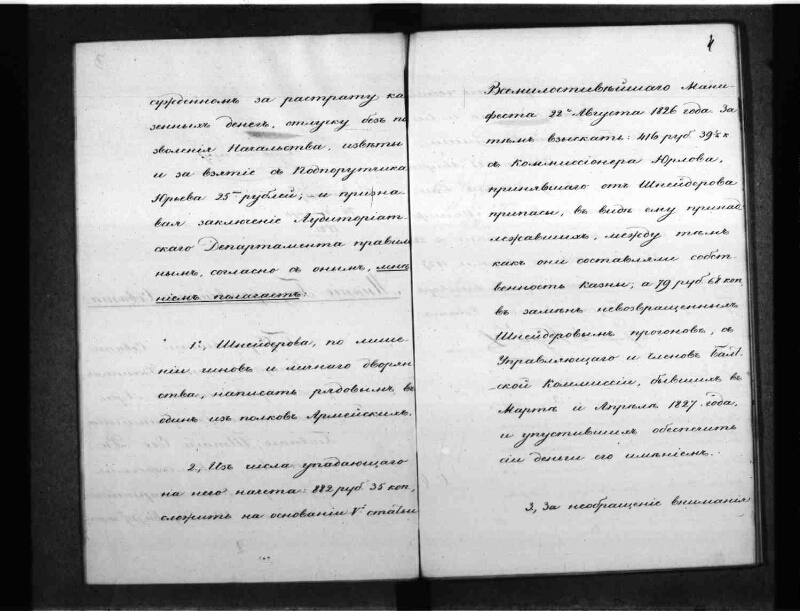 сужденномъ за растрату ка
зенныхъ денегъ, отпуску безъ по
зволенія Начальства, извѣты
и за взятіе съ Подпорутчика
Юрьева 25 рублей; и призна-
вая заключеніе Аудиторіат-
скаго Департамента правиль
нымъ, согласно съ онымъ, мнѣ
ніемъ полагаетъ:
1. Шнейдерова, по лише-
ніи чиновъ и личнаго дворян
ства, написать рядовымъ въ
одинъ изъ полковъ Армейскихъ.
2, Изъ числа упадающаго
на него начета: 882 руб 35 коп,
сложить на основаніи V. статьи
4
Всемилостивѣйшаго Мани-
феста 22го Августа 1826 года. За
тѣмъ взыскать: 416 руб 39½ к
съ Коммиссіонера Юрлова,
принявшаго отъ Шнейдерова
припасы, въ видѣ ему принад
лежавшихъ, между тѣмъ
какъ они составляли собст-
венность казны; а 79 руб. 68 коп,
въ замѣнъ невозвращенныхъ
Шнейдеровымъ прогоновъ, съ
Управляющаго и членовъ Балт
-ской Коммиссіи, бывшихъ въ
Мартѣ и Апрѣлѣ 1827 года,
и упустившихъ обезпечить
сіи деньги его имѣніемъ.
3, За необращеніе вниманія